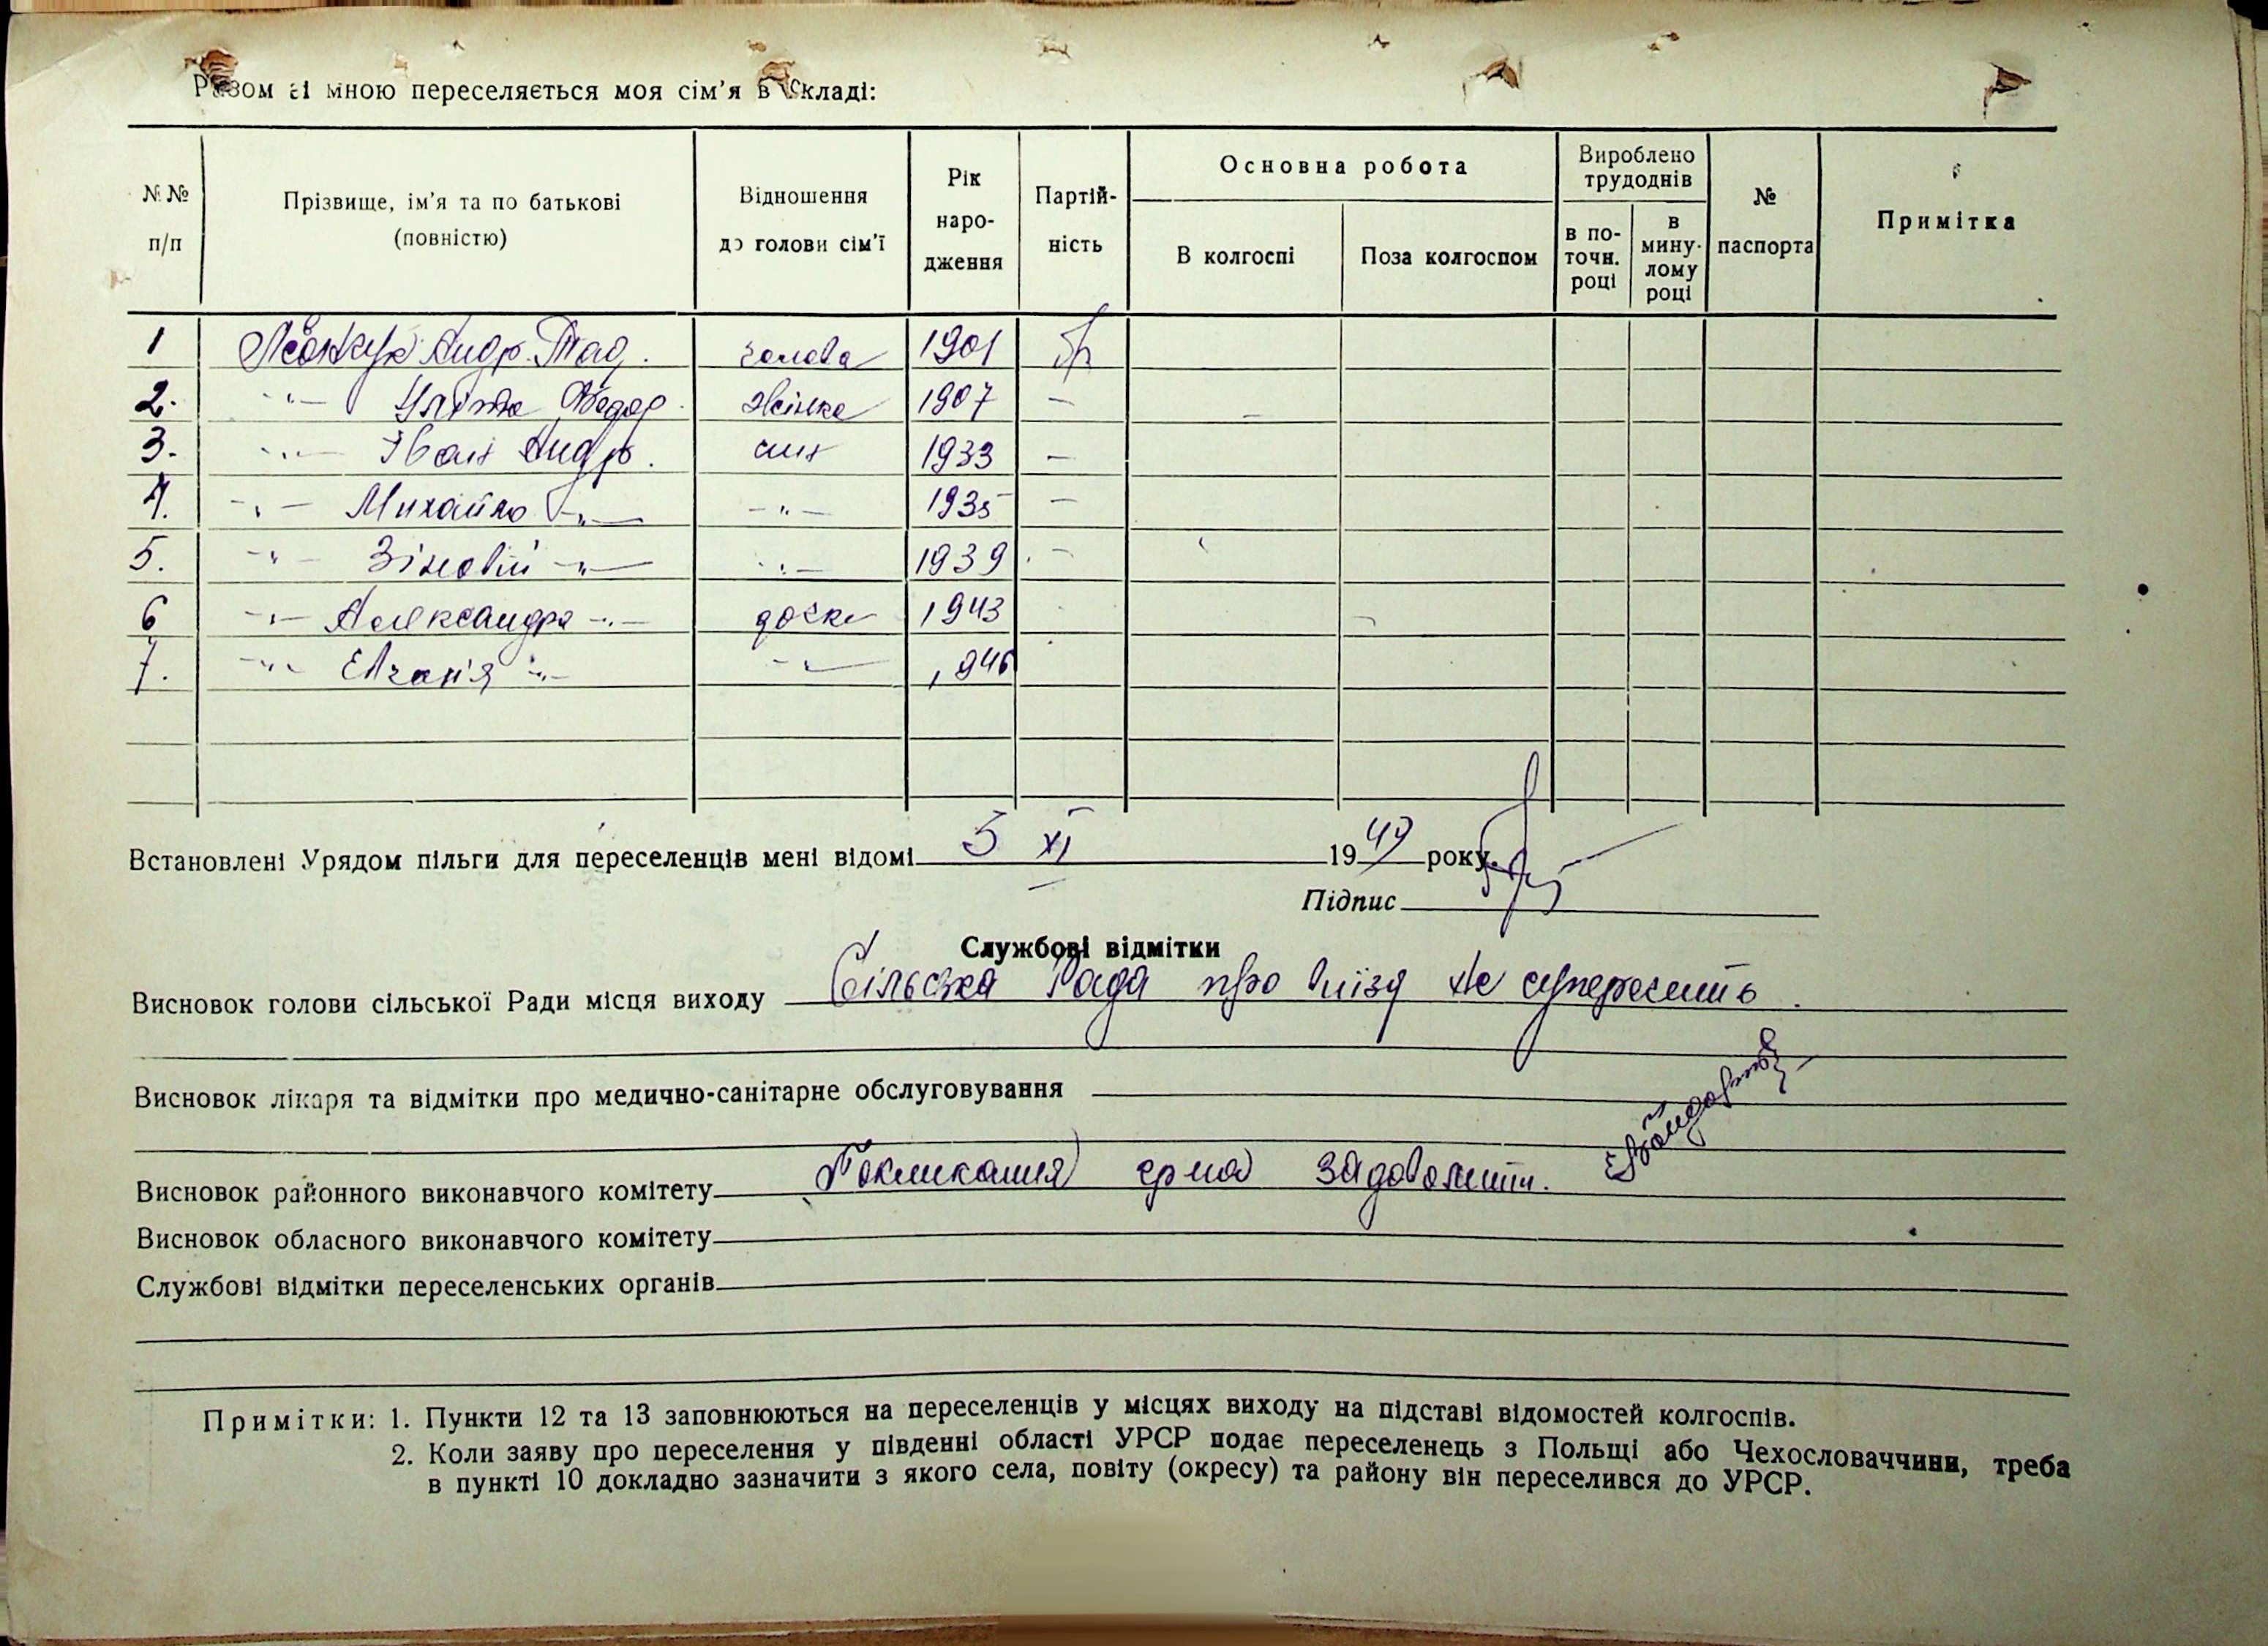 Разом зі мною переселяється моя сім'я в складі:
№№ п/п
Прізвище, ім'я та по батькові (повністю)
Відношення до голови сім'ї
Рік народження
Партійність
Основна робота
В колгоспі
Поза колгоспом
Вироблено трудоднів
в поточн. році
в минулому році
№ паспорта
Примітка
1 Андр. Тад. голова 1901
2. -"- Федор. жінка 1907 —
3. -"- Іван Андр. син 1933 —
4. -"- Михайло -"- -"- 1935 —
5. -"- Зіновій -"- -"- 1939 —
6 -"- Александра -"- дочка 1943
7. -"- -"- -"- 1946
Встановлені Урядом пільги для переселенців мені відомі 5 XI 1949 року.
Підпис
Службові відмітки
Висновок голови сільської Ради місця виходу Сільська Рада про виїзд не суперечить.
Висновок лікаря та відмітки про медично-санітарне обслуговування
Висновок районного виконавчого комітету задовольнити.
Висновок обласного виконавчого комітету
Службові відмітки переселенських органів
Примітки: 1. Пункти 12 та 13 заповнюються на переселенців у місцях виходу на підставі відомостей колгоспів.
2. Коли заяву про переселення у південні області УРСР подає переселенець з Польщі або Чехословаччини, треба
в пункті 10 докладно зазначити з якого села, повіту (окресу) та району він переселився до УРСР.